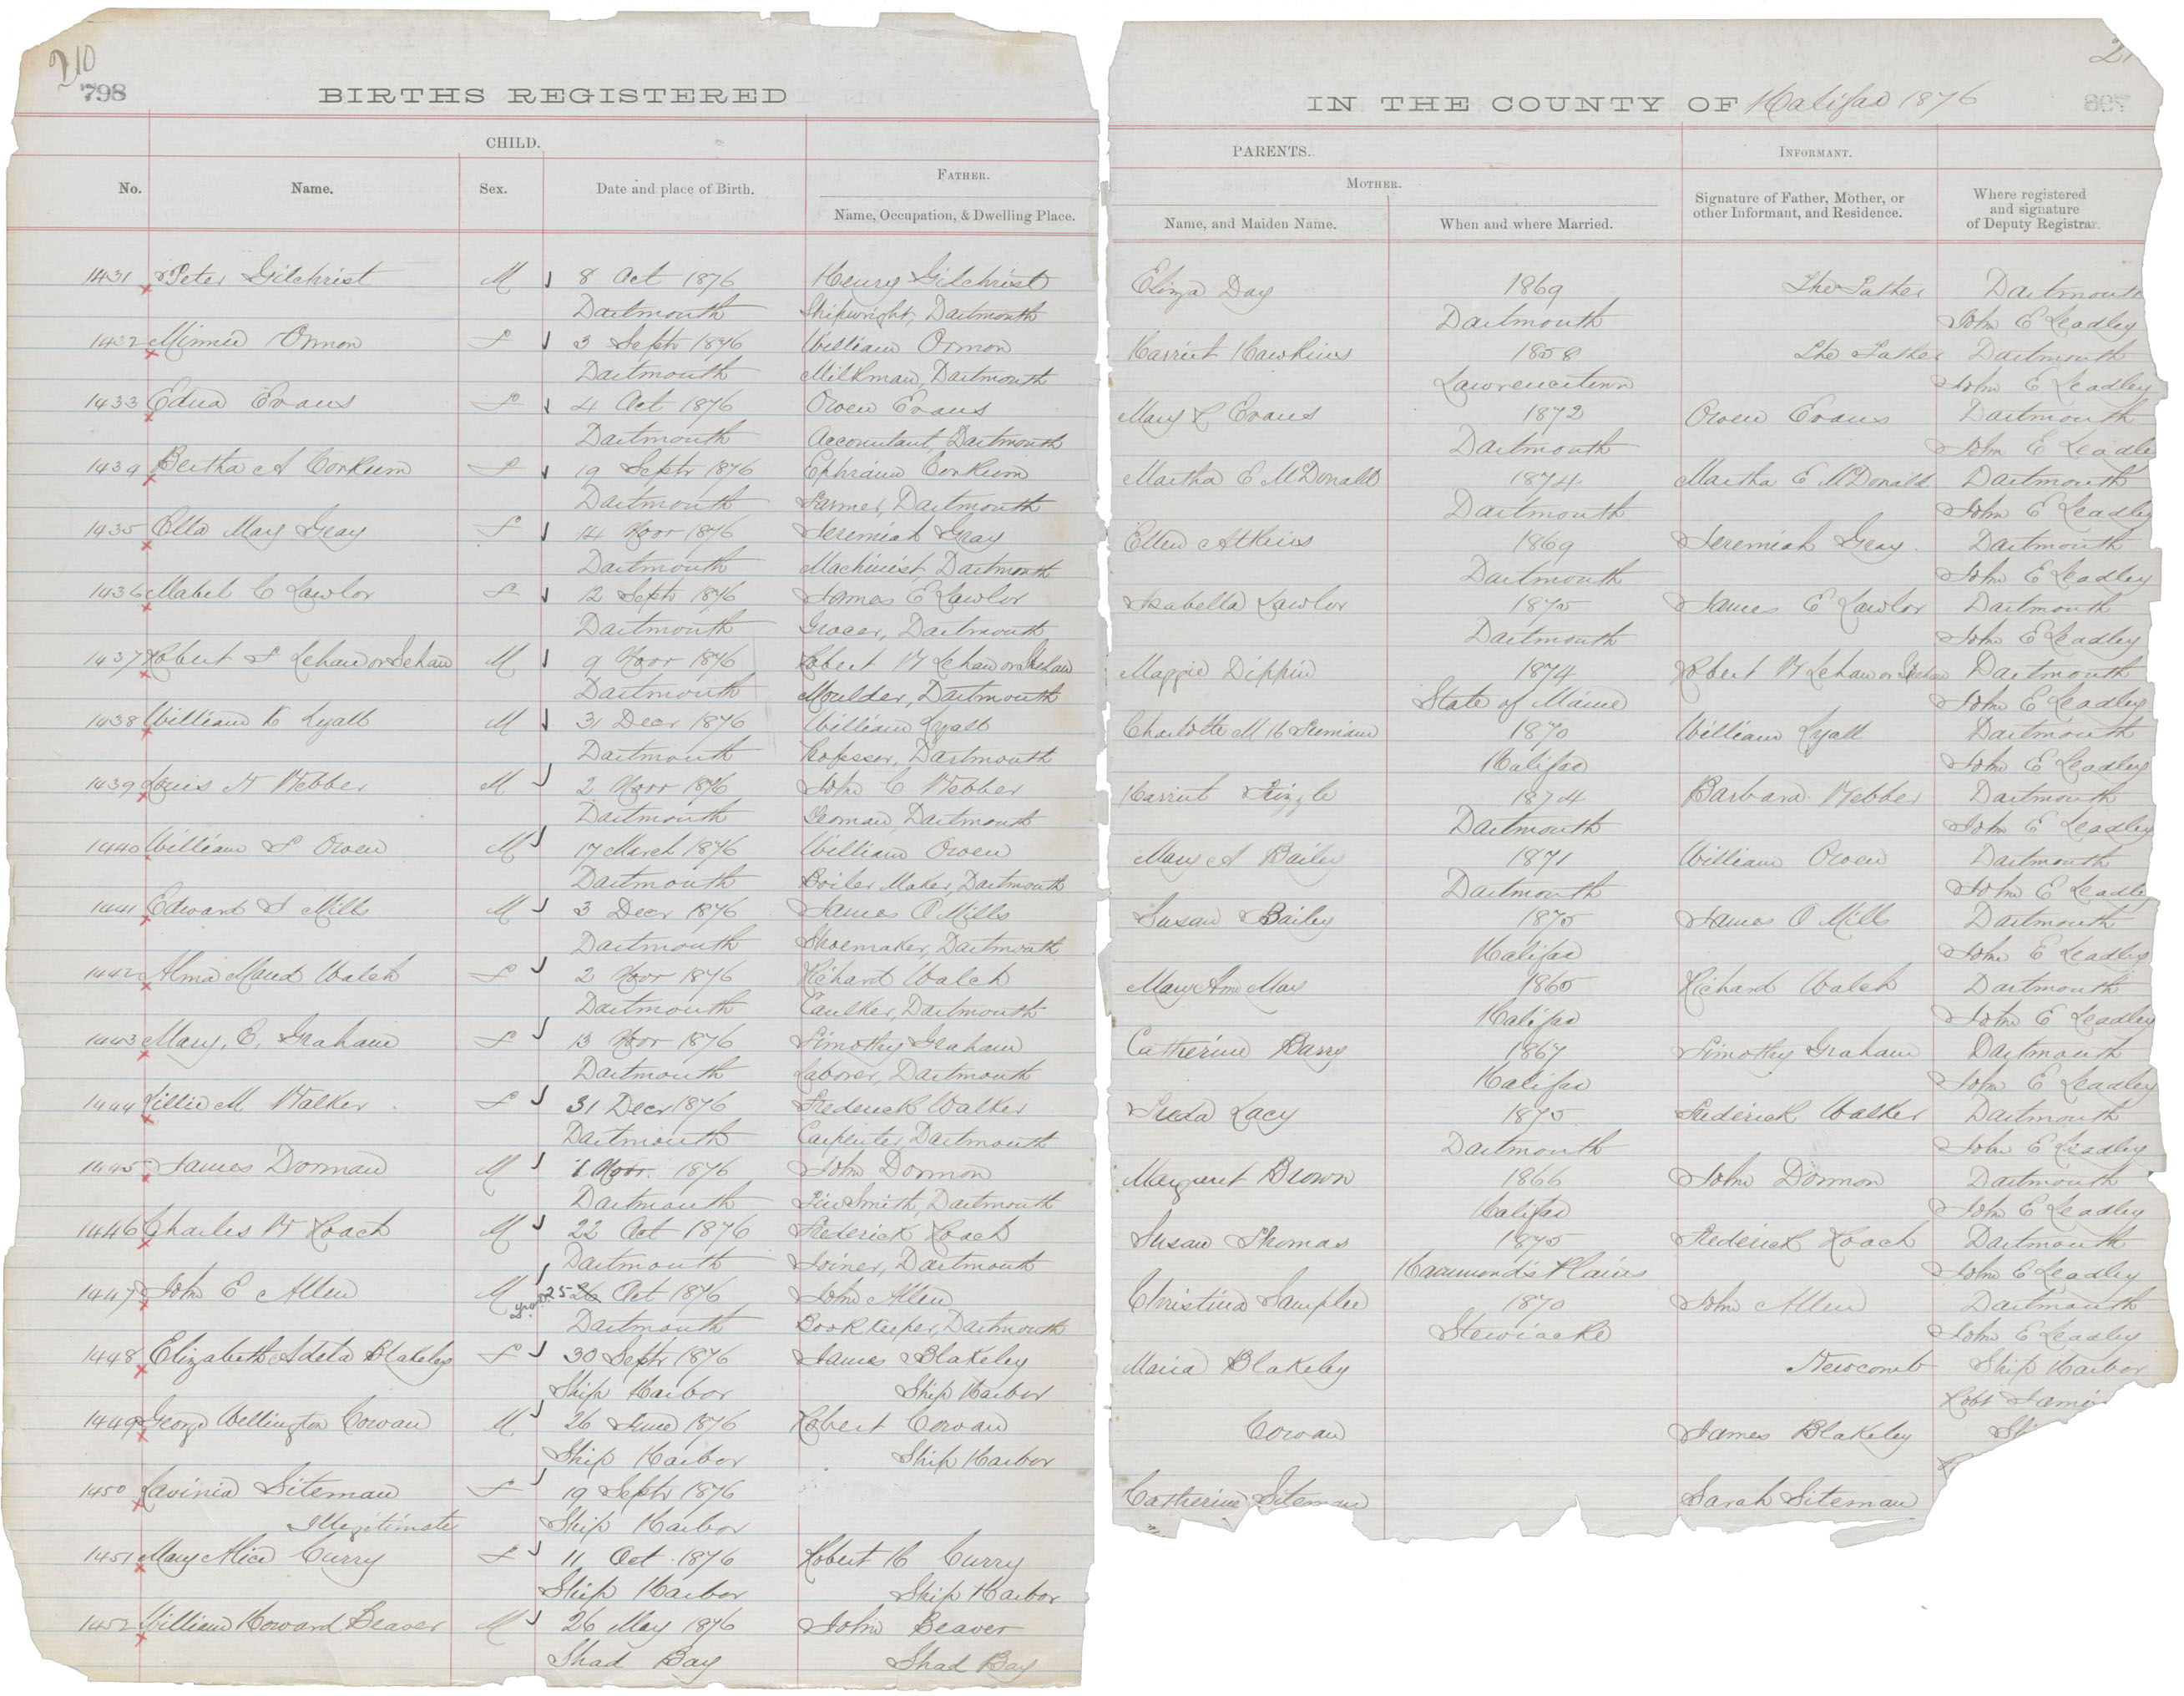 210
798
BIRTHS REGISTERED
CHILD.
No. Name. Sex. Date and place of Birth. FATHER.
Name, Occupation, & Dwelling Place.
1431 Peter Gilchrist M 8 Oct 1876 Henry Gilchrist
Dartmouth Shipwright, Dartmouth
1432 Minnie Ormon F 3 Septr 1876 William Ormon
Dartmouth Milkman, Dartmouth
1433 Edna Evans F 4 Oct 1876 Owen Evans
Dartmouth Accountant, Dartmouth
1434 Bertha A Corkum F 19 Septr 1876 Ephraim Corkum
Dartmouth Farmer, Dartmouth
1435 Ella May Gray F 14 Novr 1876 Jeremiah Gray
Dartmouth Machinist, Dartmouth
1436 Mabel C Lawlor F 12 Septr 1876 James E Lawlor
Dartmouth Grocer, Dartmouth
1437 Robert S Lehaw or Sehaw M 9 Novr 1876 Robert W Lehaw or
Dartmouth Moulder, Dartmouth
1438 William K Lyall M 31 Decr 1876 William Lyall
Dartmouth Professor, Dartmouth
1439 Louis N Webber M 2 Novr 1876 John C Webber
Dartmouth Yeoman, Dartmouth
1440 William S Owen M 17 March 1876 William Owen
Dartmouth Boiler Maker, Dartmouth
1441 Edward S Mills M 3 Decr 1876 James O Mills
Dartmouth Shoemaker, Dartmouth
1442 Alma Maud Walch F 2 Novr 1876 Richard Walch
Dartmouth Caulker, Dartmouth
1443 Mary, E, Graham F 13 Novr 1876 Timothy Graham
Dartmouth Laborer, Dartmouth
1444 Lillie M Walker F 31 Decr 1876 Frederick Walker
Dartmouth Carpenter, Dartmouth
1445 James Dorman M 1 Novr. 1876 John Dormon
Dartmouth Tin Smith, Dartmouth
1446 Charles W Roach M 22 Oct 1876 Frederick Roach
Dartmouth Joiner, Dartmouth
1447 John E Allen M 25 26 Oct 1876 John Allen
Dartmouth Book Keeper, Dartmouth
1448 Elizabeth Adela Blakeley F 30 Septr 1876 James Blakeley
Ship Harbor Ship Harbor
1449 George Wellington Cowan M 26 June 1876 Robert Cowan
Ship Harbor Ship Harbor
1450 Lavinia Siteman F 19 Septr 1876
Illegitimate Ship Harbor
1451 Mary Alice Curry F 11 Oct 1876 Robert H Curry
Ship Harbor Ship Harbor
1452 William Howard Beaver M 26 May 1876 John Beaver
Shad Bay Shad Bay
IN THE COUNTY OF Halifax 1876
798
PARENTS. INFORMANT.
MOTHER.
Name, and Maiden Name. When and where Married. Signature of Father, Mother, or other Informant, and Residence. Where registered and signature of Deputy Registrar.
Eliza Day 1869 The Father Dartmouth
Dartmouth John E Leadley
Harriet Hawkins 1858 The Father Dartmouth
Lawrencetown John E Leadley
Mary L Evans 1872 Owen Evans Dartmouth
Dartmouth John E Leadle
Martha E McDonald 1874 Martha E McDonald Dartmouth
Dartmouth John E Leadley
Ellen Atkins 1869 Jeremiah Gray. Dartmouth
Dartmouth John E Leadley
Isabella Lawlor 1875 James E Lawlor Dartmouth
Dartmouth John E Leadley
Maggie Dippin 1874 Robert W Lehaw or Dartmouth
State of Maine John E Leadley
Charlotte M 1870 William Lyall Dartmouth
Halifax John E Leadley
Harriet 1874 Barbara Webber Dartmouth
Dartmouth John E Leadley
Mary A Bailey 1871 William Owen Dartmouth
Dartmouth John E Leadle
Susan Bailey 1875 James O Mills Dartmouth
Halifax John E Leadley
Mary Ann May 1865 Richard Walch Dartmouth
Halifax John E Leadley
Catherine Barry 1867 Timothy Graham Dartmouth
Halifax John E Leadley
Lacy 1875 Frederick Walker Dartmouth
Dartmouth John E Leadley
Margaret Brown 1866 John Dormon Dartmouth
Halifax John E Leadley
Susan Thomas 1875 Frederick Roach Dartmouth
Hammond's Plains John E Leadley
Christina Samplee 1870 John Allen Dartmouth
Stewiacke John E Leadley
Maria Blakeley Newcomb Ship Harbor
Robt Jami
Cowan James Blakeley Sh
Catherine Siteman Sarah Siteman